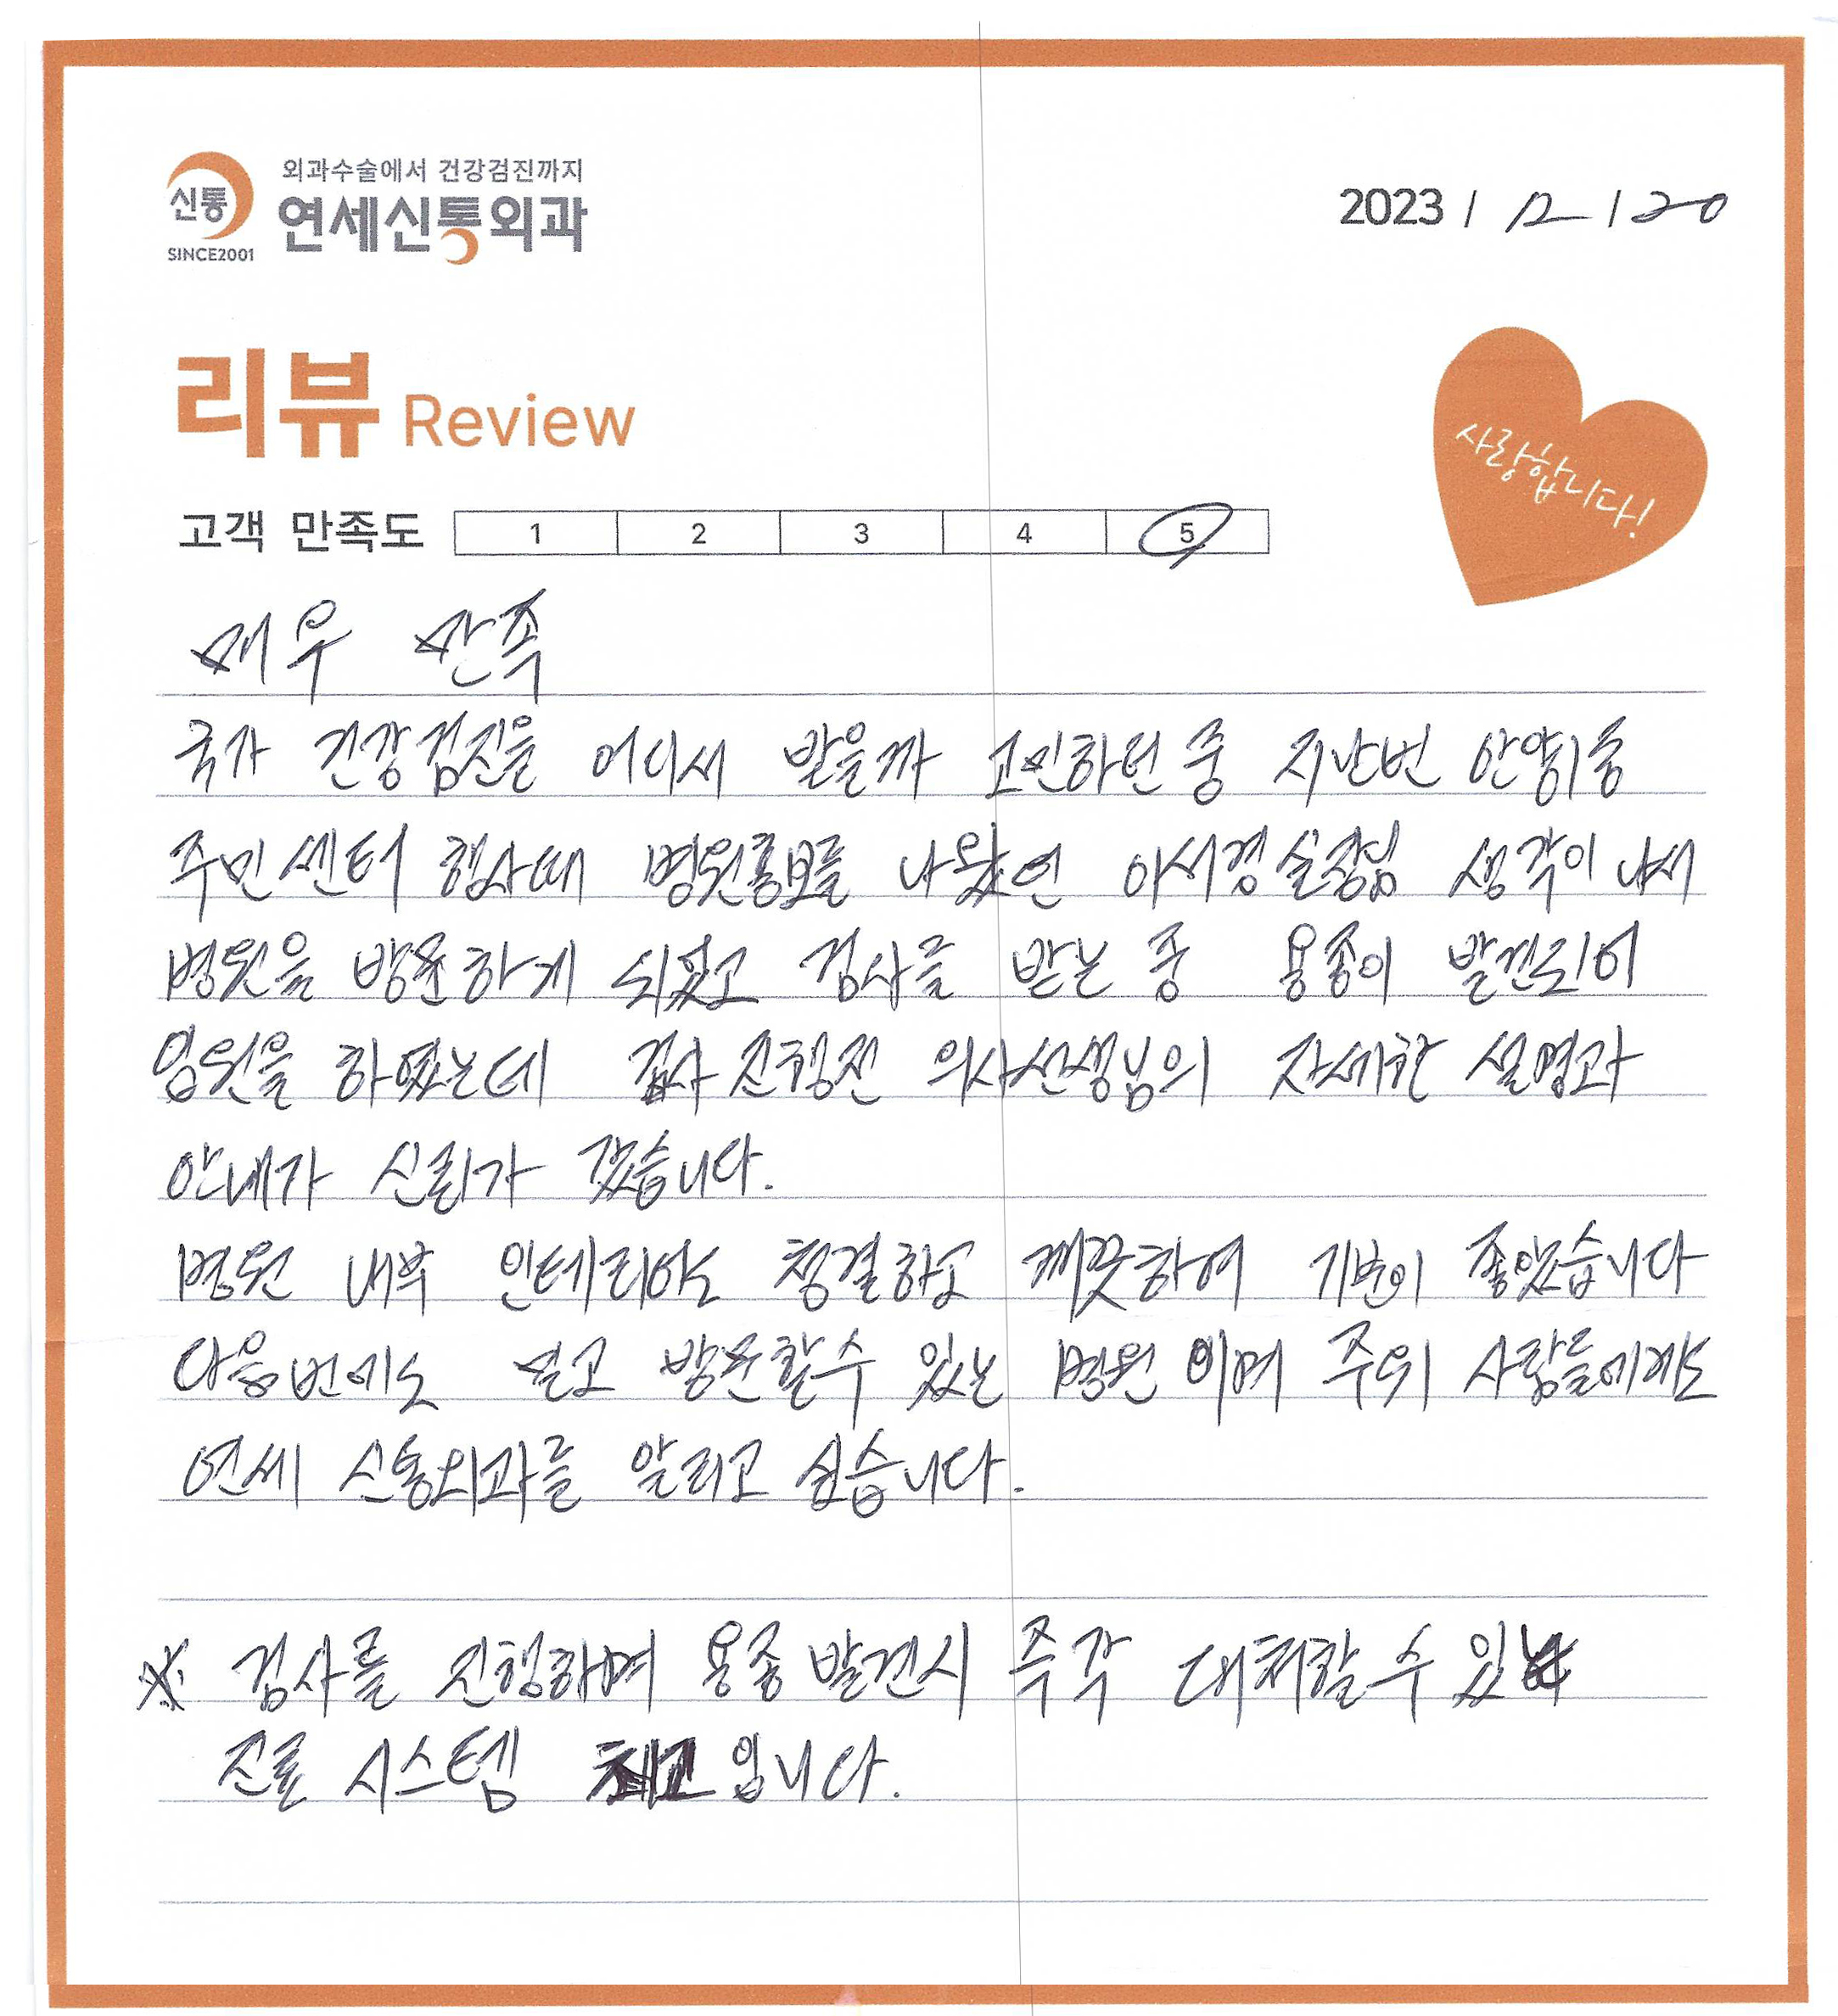 신통
SINCE2001
외과수술에서 건강검진까지
연세신통외과
2023 / 12 / 20
리뷰 Review
사랑합니다!
고객 만족도 1 2 3 4 5
매우 만족
국가 건강검진을 어디서 받을까 고민하던 중 지난번 안양1동
주민센터 행사때 병원홍보를 나왔던 이서경 실장님 생각이 나서
병원을 방문하게 되었고 검사를 받는 중 용종이 발견되어
입원을 하였는데 검사 진행전 의사선생님의 자세한 설명과
안내가 신뢰가 갔습니다.
병원 내부 인테리어도 청결하고 깨끗하여 기분이 좋았습니다
다음번에도 믿고 방문할수 있는 병원 이며 주위 사람들에게도
연세 신통외과를 알리고 싶습니다.
※ 검사를 진행하며 용종 발견시 즉각 대처할 수 있는
진료 시스템 최고 입니다.